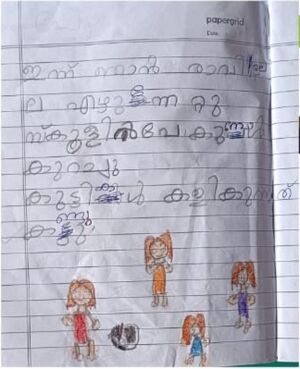 papergrid
Date:
ഇന്ന് ഞാൻ രാവിലെ
ല എഴുന്ന റ്റു
സ്കൂളിൽപോകുമ്പോൾ
കുറച്ചു
കുട്ടികൾ കളിക്കുന്നത്
കണ്ടു